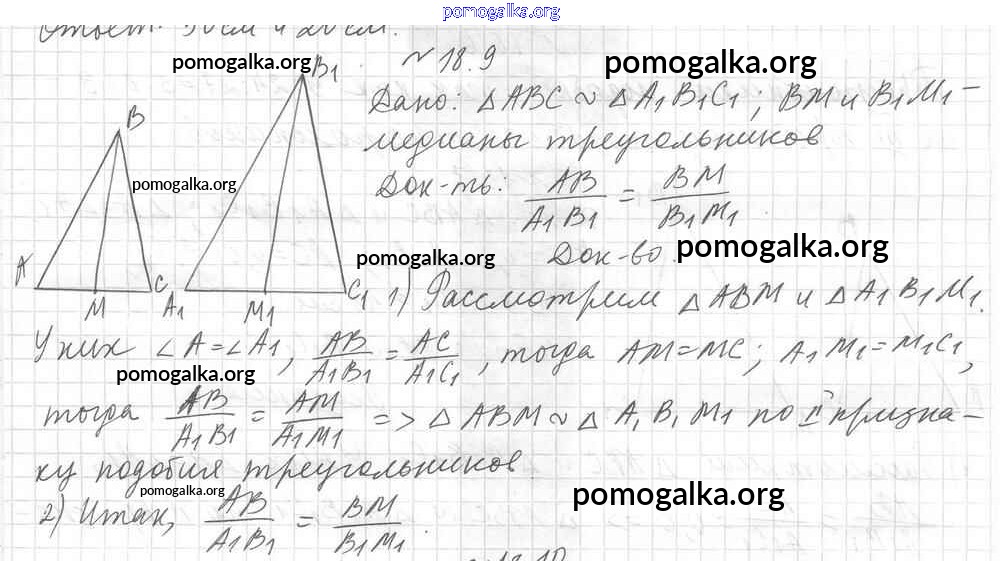 pomogalka.org
Ответ: 30 см и 20 см.
pomogalka.org
B1
№18.9
pomogalka.org
Дано: △ABC ~ △A1B1C1; BM и B1M1 –
B
медианы треугольников
pomogalka.org
Док-ть: AB/A1B1 = BM/B1M1.
Док-во.
pomogalka.org
A
M
C
A1
M1
C1
pomogalka.org
1) Рассмотрим △ABM и △A1B1M1.
У них ∠A=∠A1, AB/A1B1 = AC/A1C1, тогда AM=MC; A1M1=M1C1,
pomogalka.org
тогда AB/A1B1 = AM/A1M1 => △ABM ~ △A1B1M1 по II призна–
ку подобия треугольников
pomogalka.org
pomogalka.org
2) Итак, AB/A1B1 = BM/B1M1.
18.10